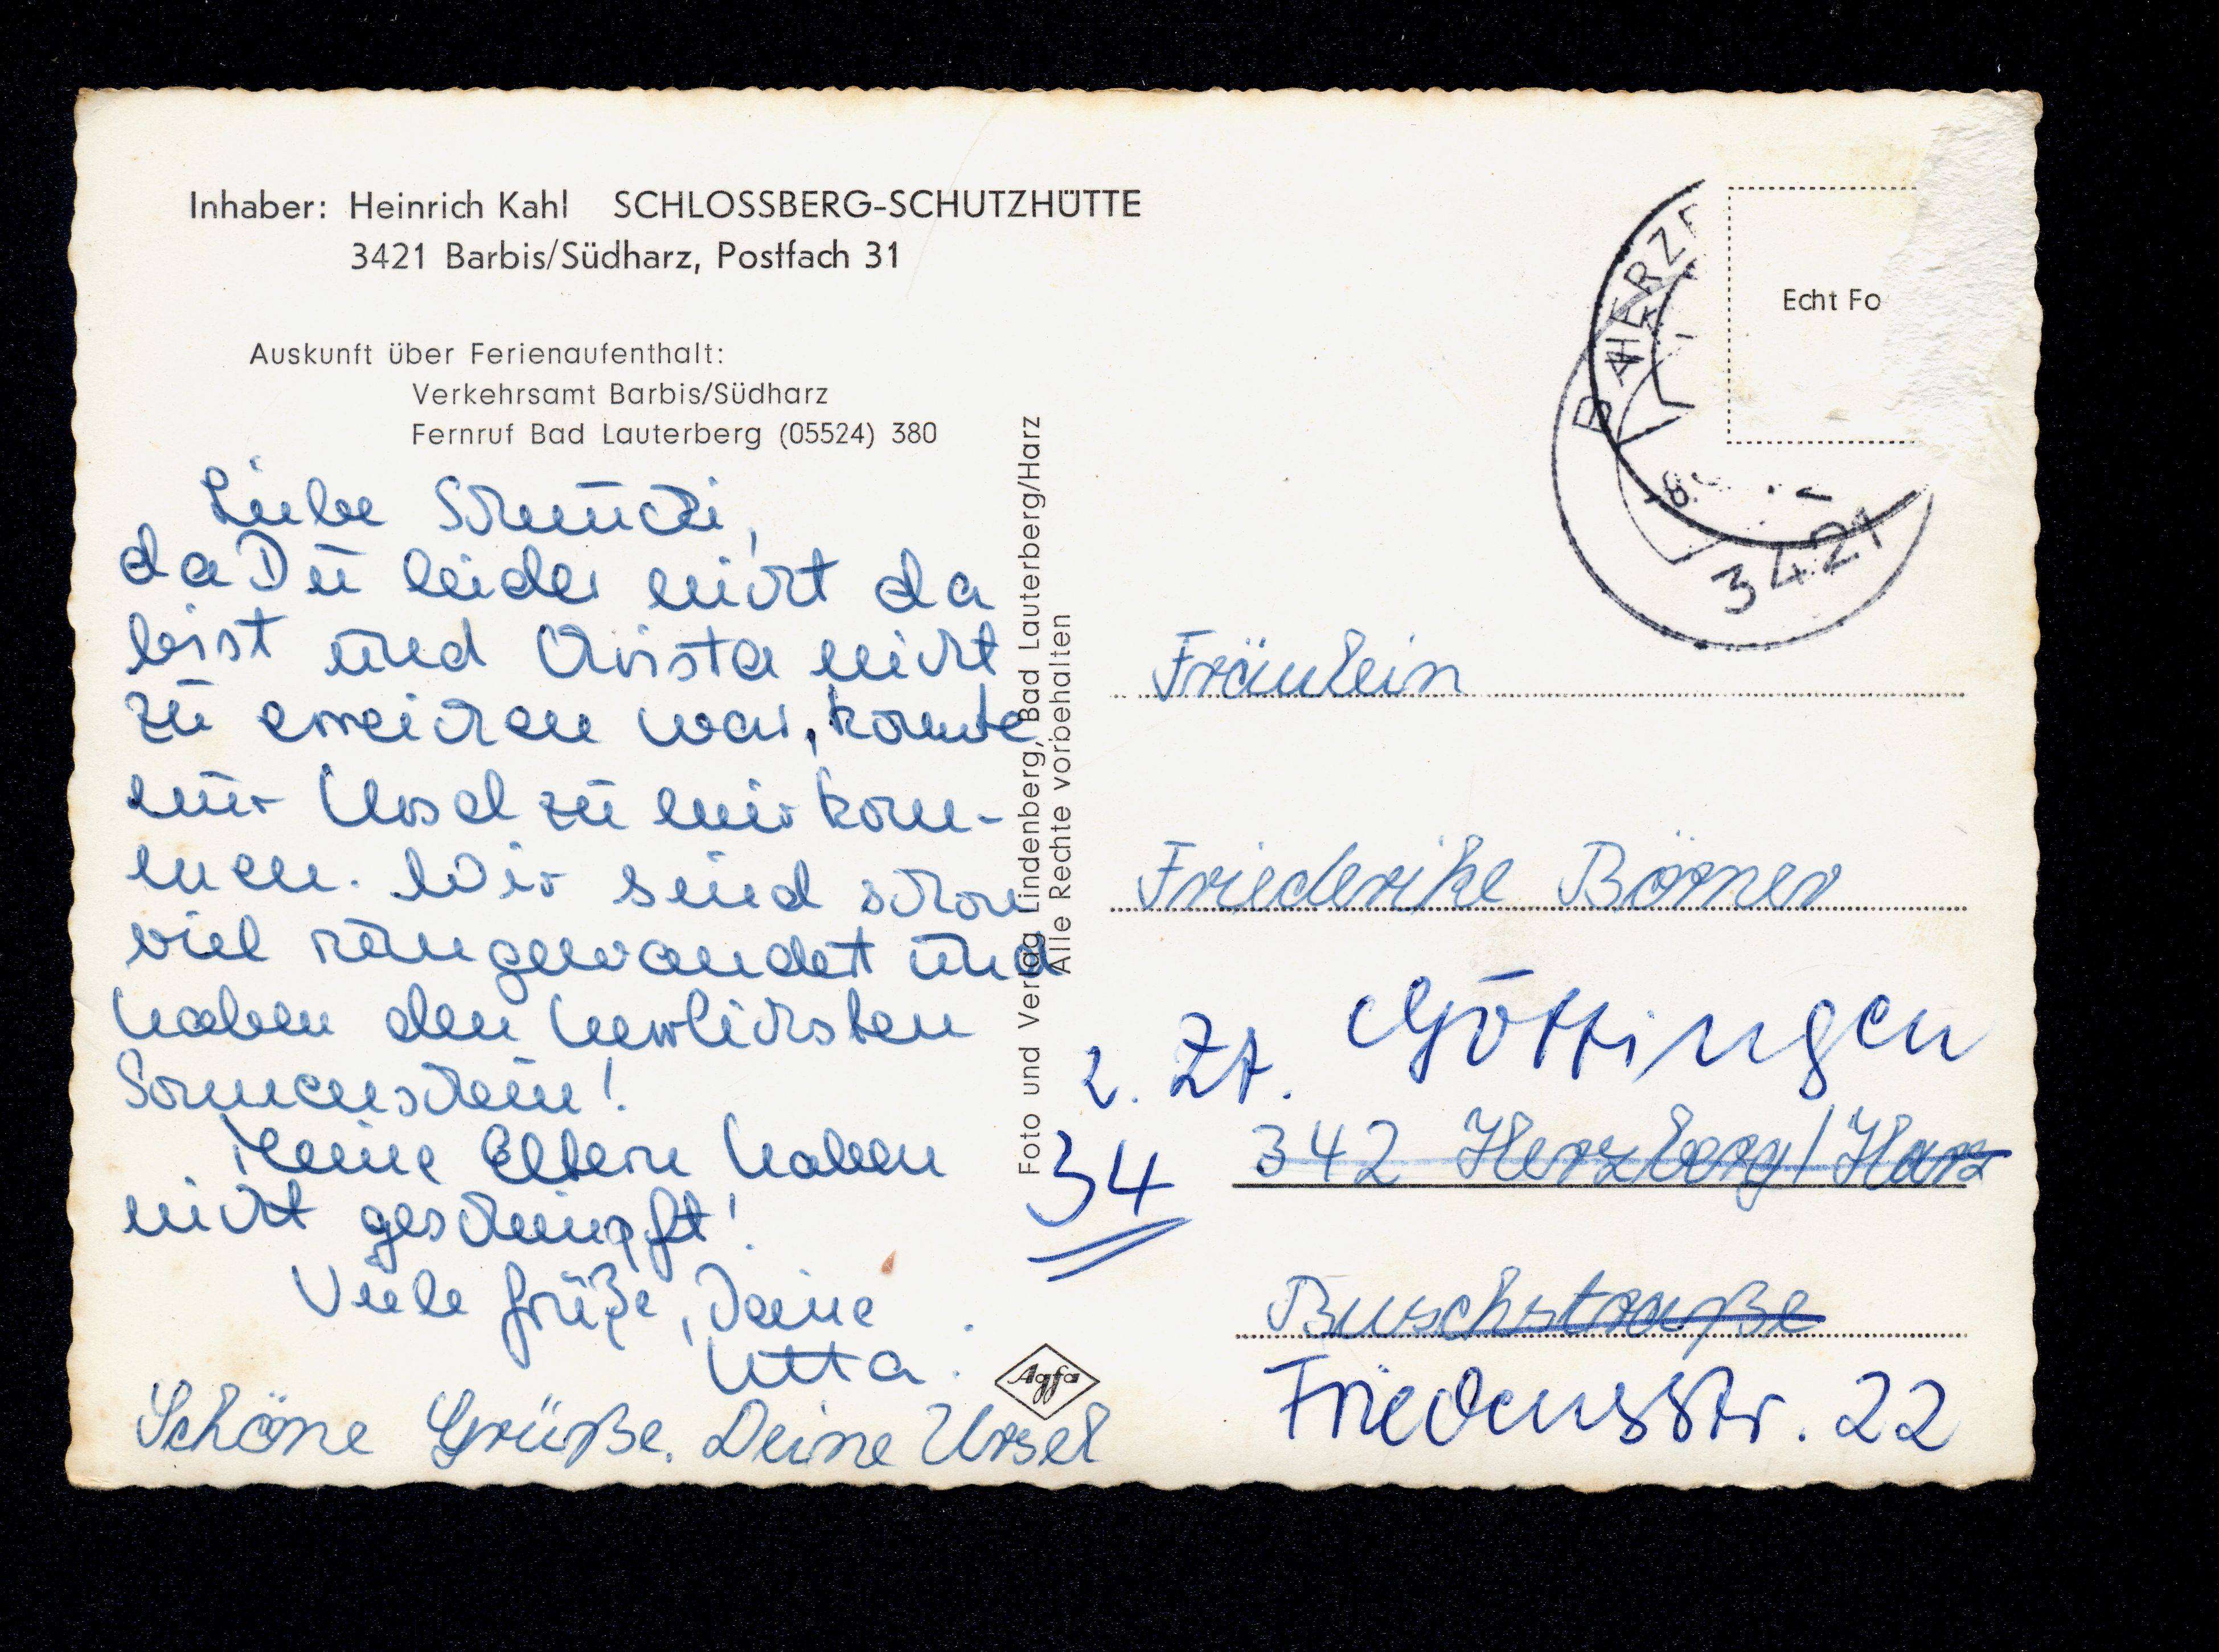 Inhaber: Heinrich Kahl SCHLOSSBERG-SCHUTZHÜTTE
3421 Barbis/Südharz, Postfach 31
Auskunft über Ferienaufenthalt:
Verkehrsamt Barbis/Südharz
Fernruf Bad Lauterberg (05524) 380
Liebe Schnucki,
da Du leider nicht da
bist und Christa nicht
zu erreichen war, konnte
nur Ursel zu mir kom-
men. Wir sind schon
viel rumgewandert und
haben den herrlichsten
Sonnenschein!
Meine Eltern haben
nicht geschimpft!
Viele Grüße, Deine
Utta.
Schöne Grüße. Deine Ursel
Foto und Verlag Lindenberg, Bad Lauterberg/Harz
Alle Rechte vorbehalten
Agfa
Echt Fo
3421
Fräulein
Friederike Börner
z. Zt. Göttingen
34 342 Herzberg/Harz
Buschstraße
Friedensstr. 22